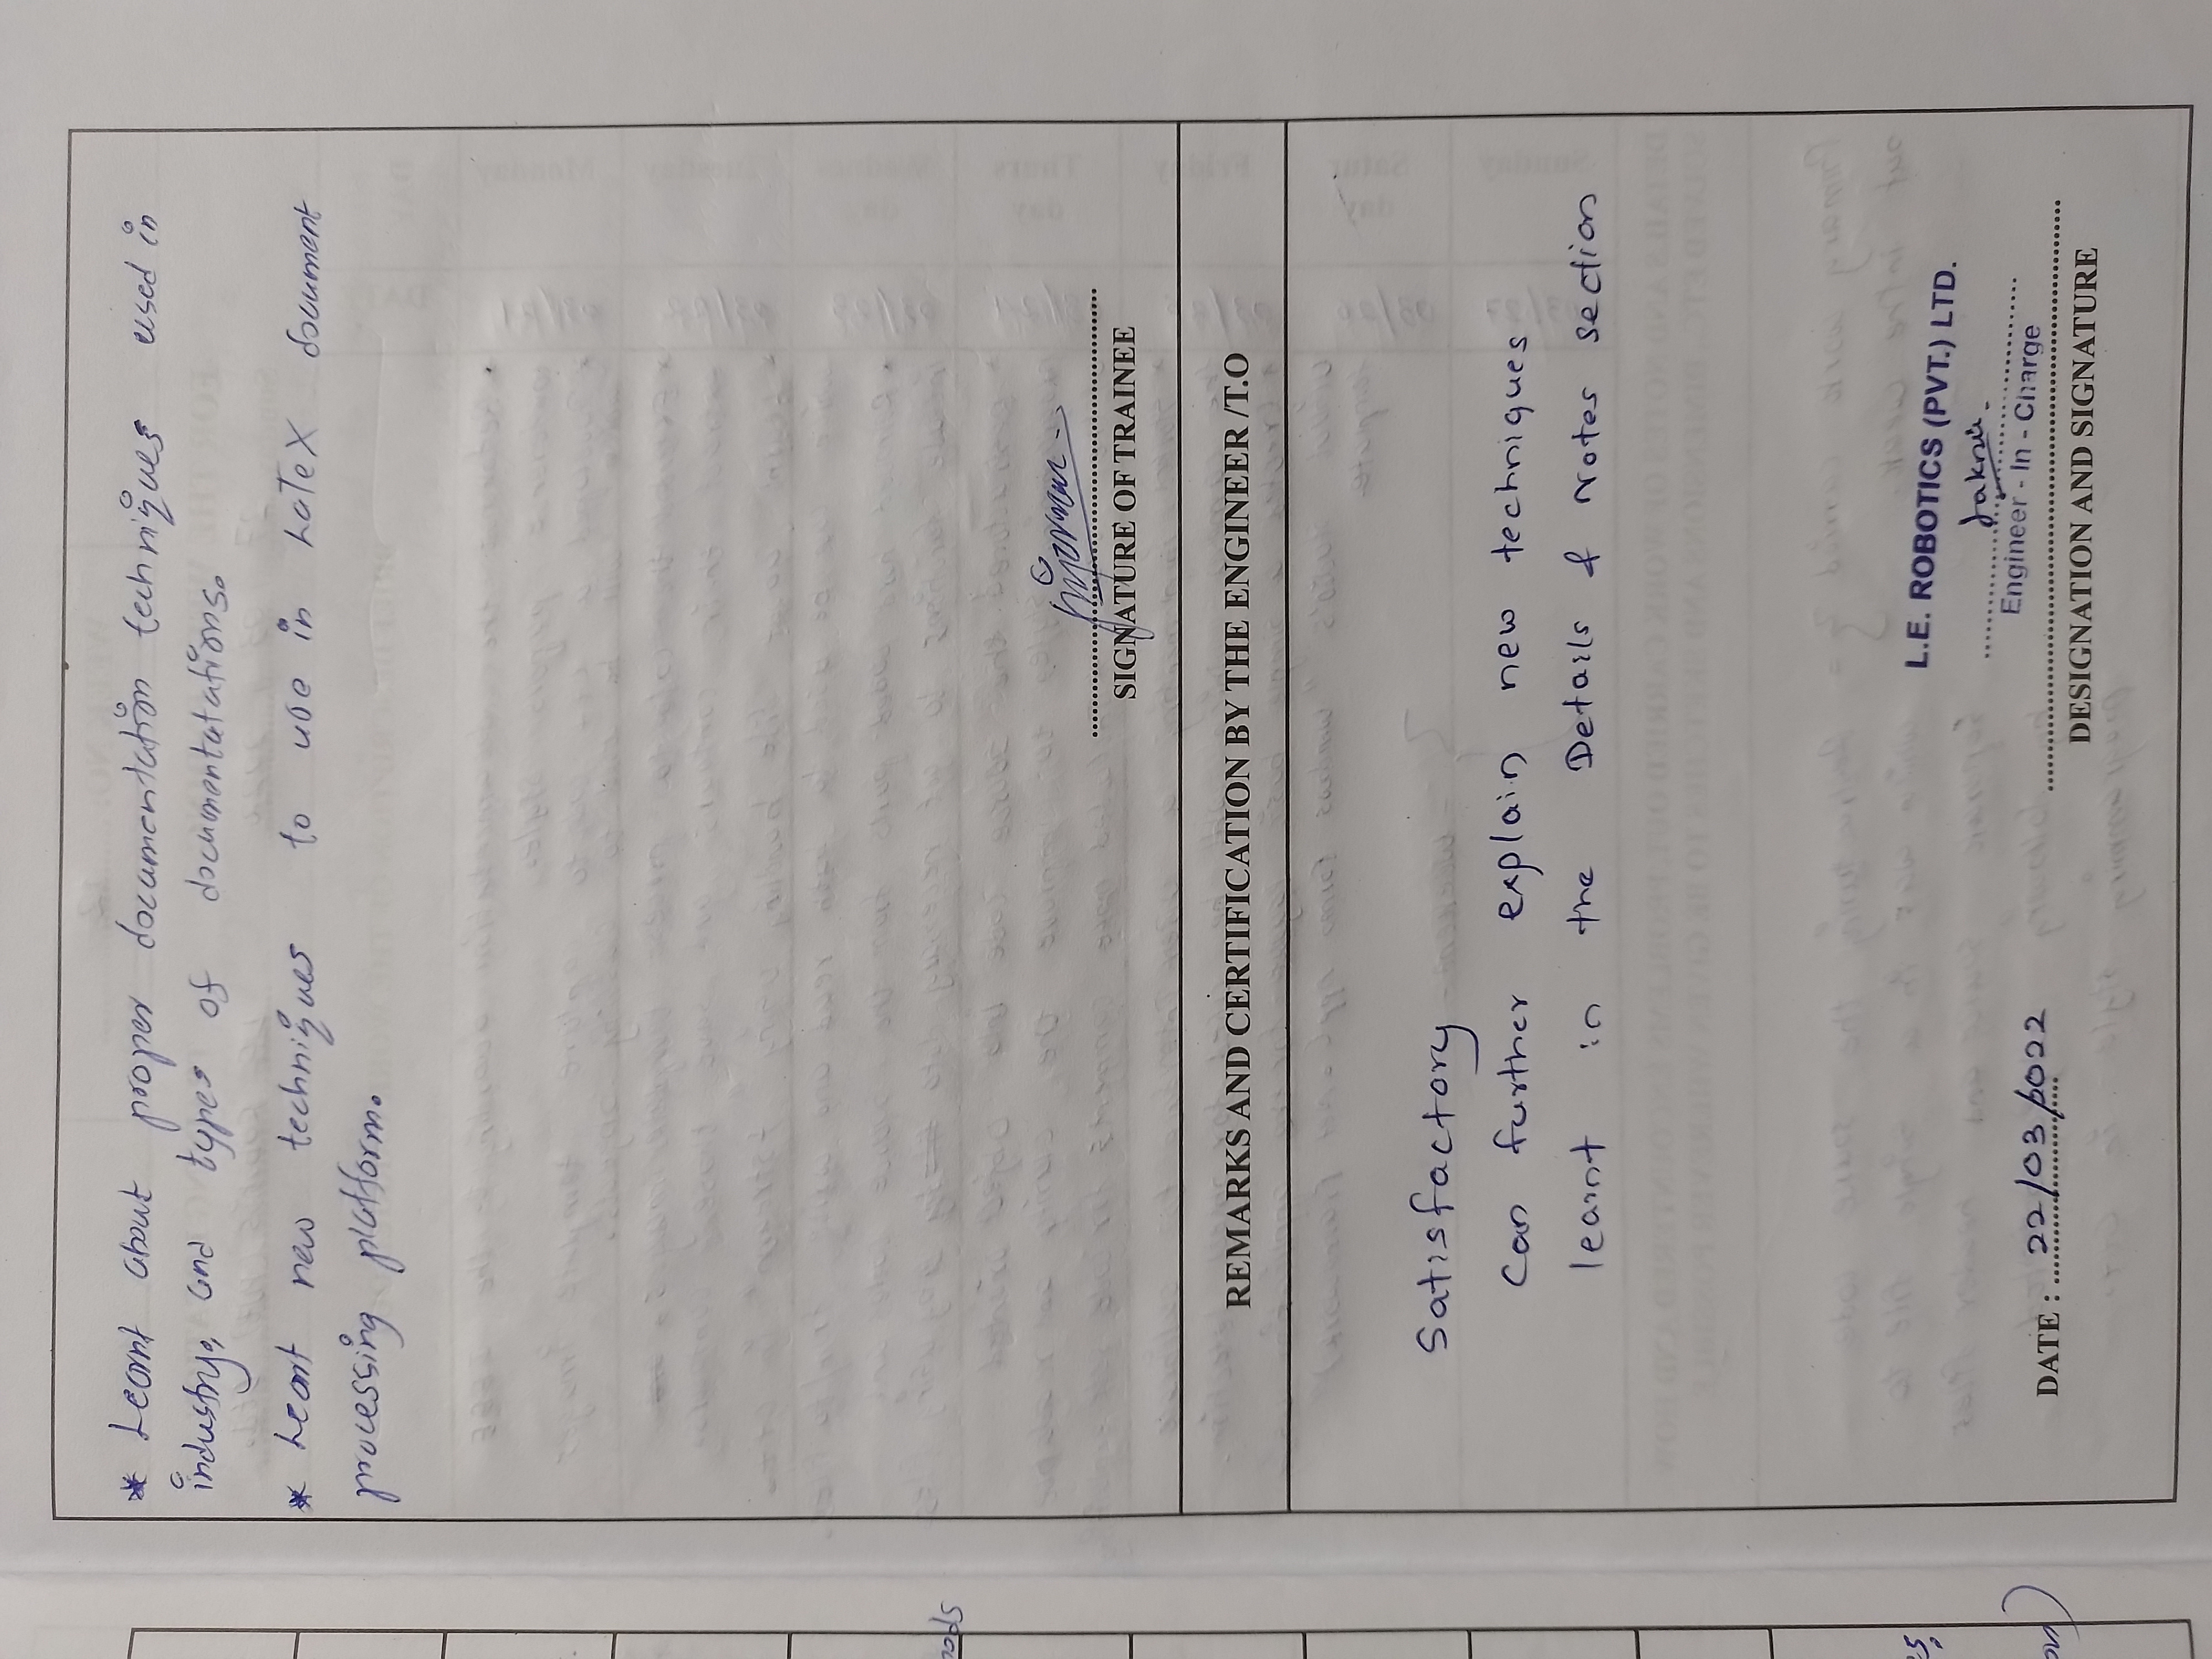 * Learnt about proper documentation techniques used in
industry, and types of documentatations.
* Learnt new techniques to use in LaTeX document
processing platform.
SIGNATURE OF TRAINEE
REMARKS AND CERTIFICATION BY THE ENGINEER /T.O
Satisfactory
Can further explain new techniques
learnt in the Details & Notes section
L.E. ROBOTICS (PVT.) LTD.
Engineer - In - Charge
DATE : 22/03/2022
DESIGNATION AND SIGNATURE